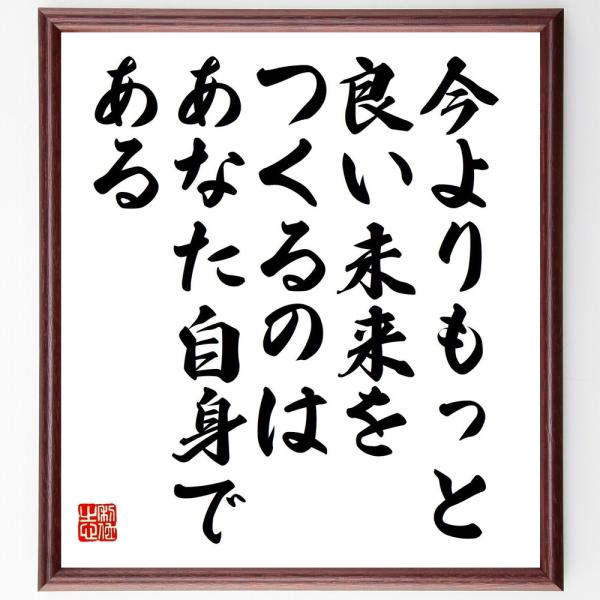 今よりもっと
良い未来を
つくるのは
あなた自身で
ある